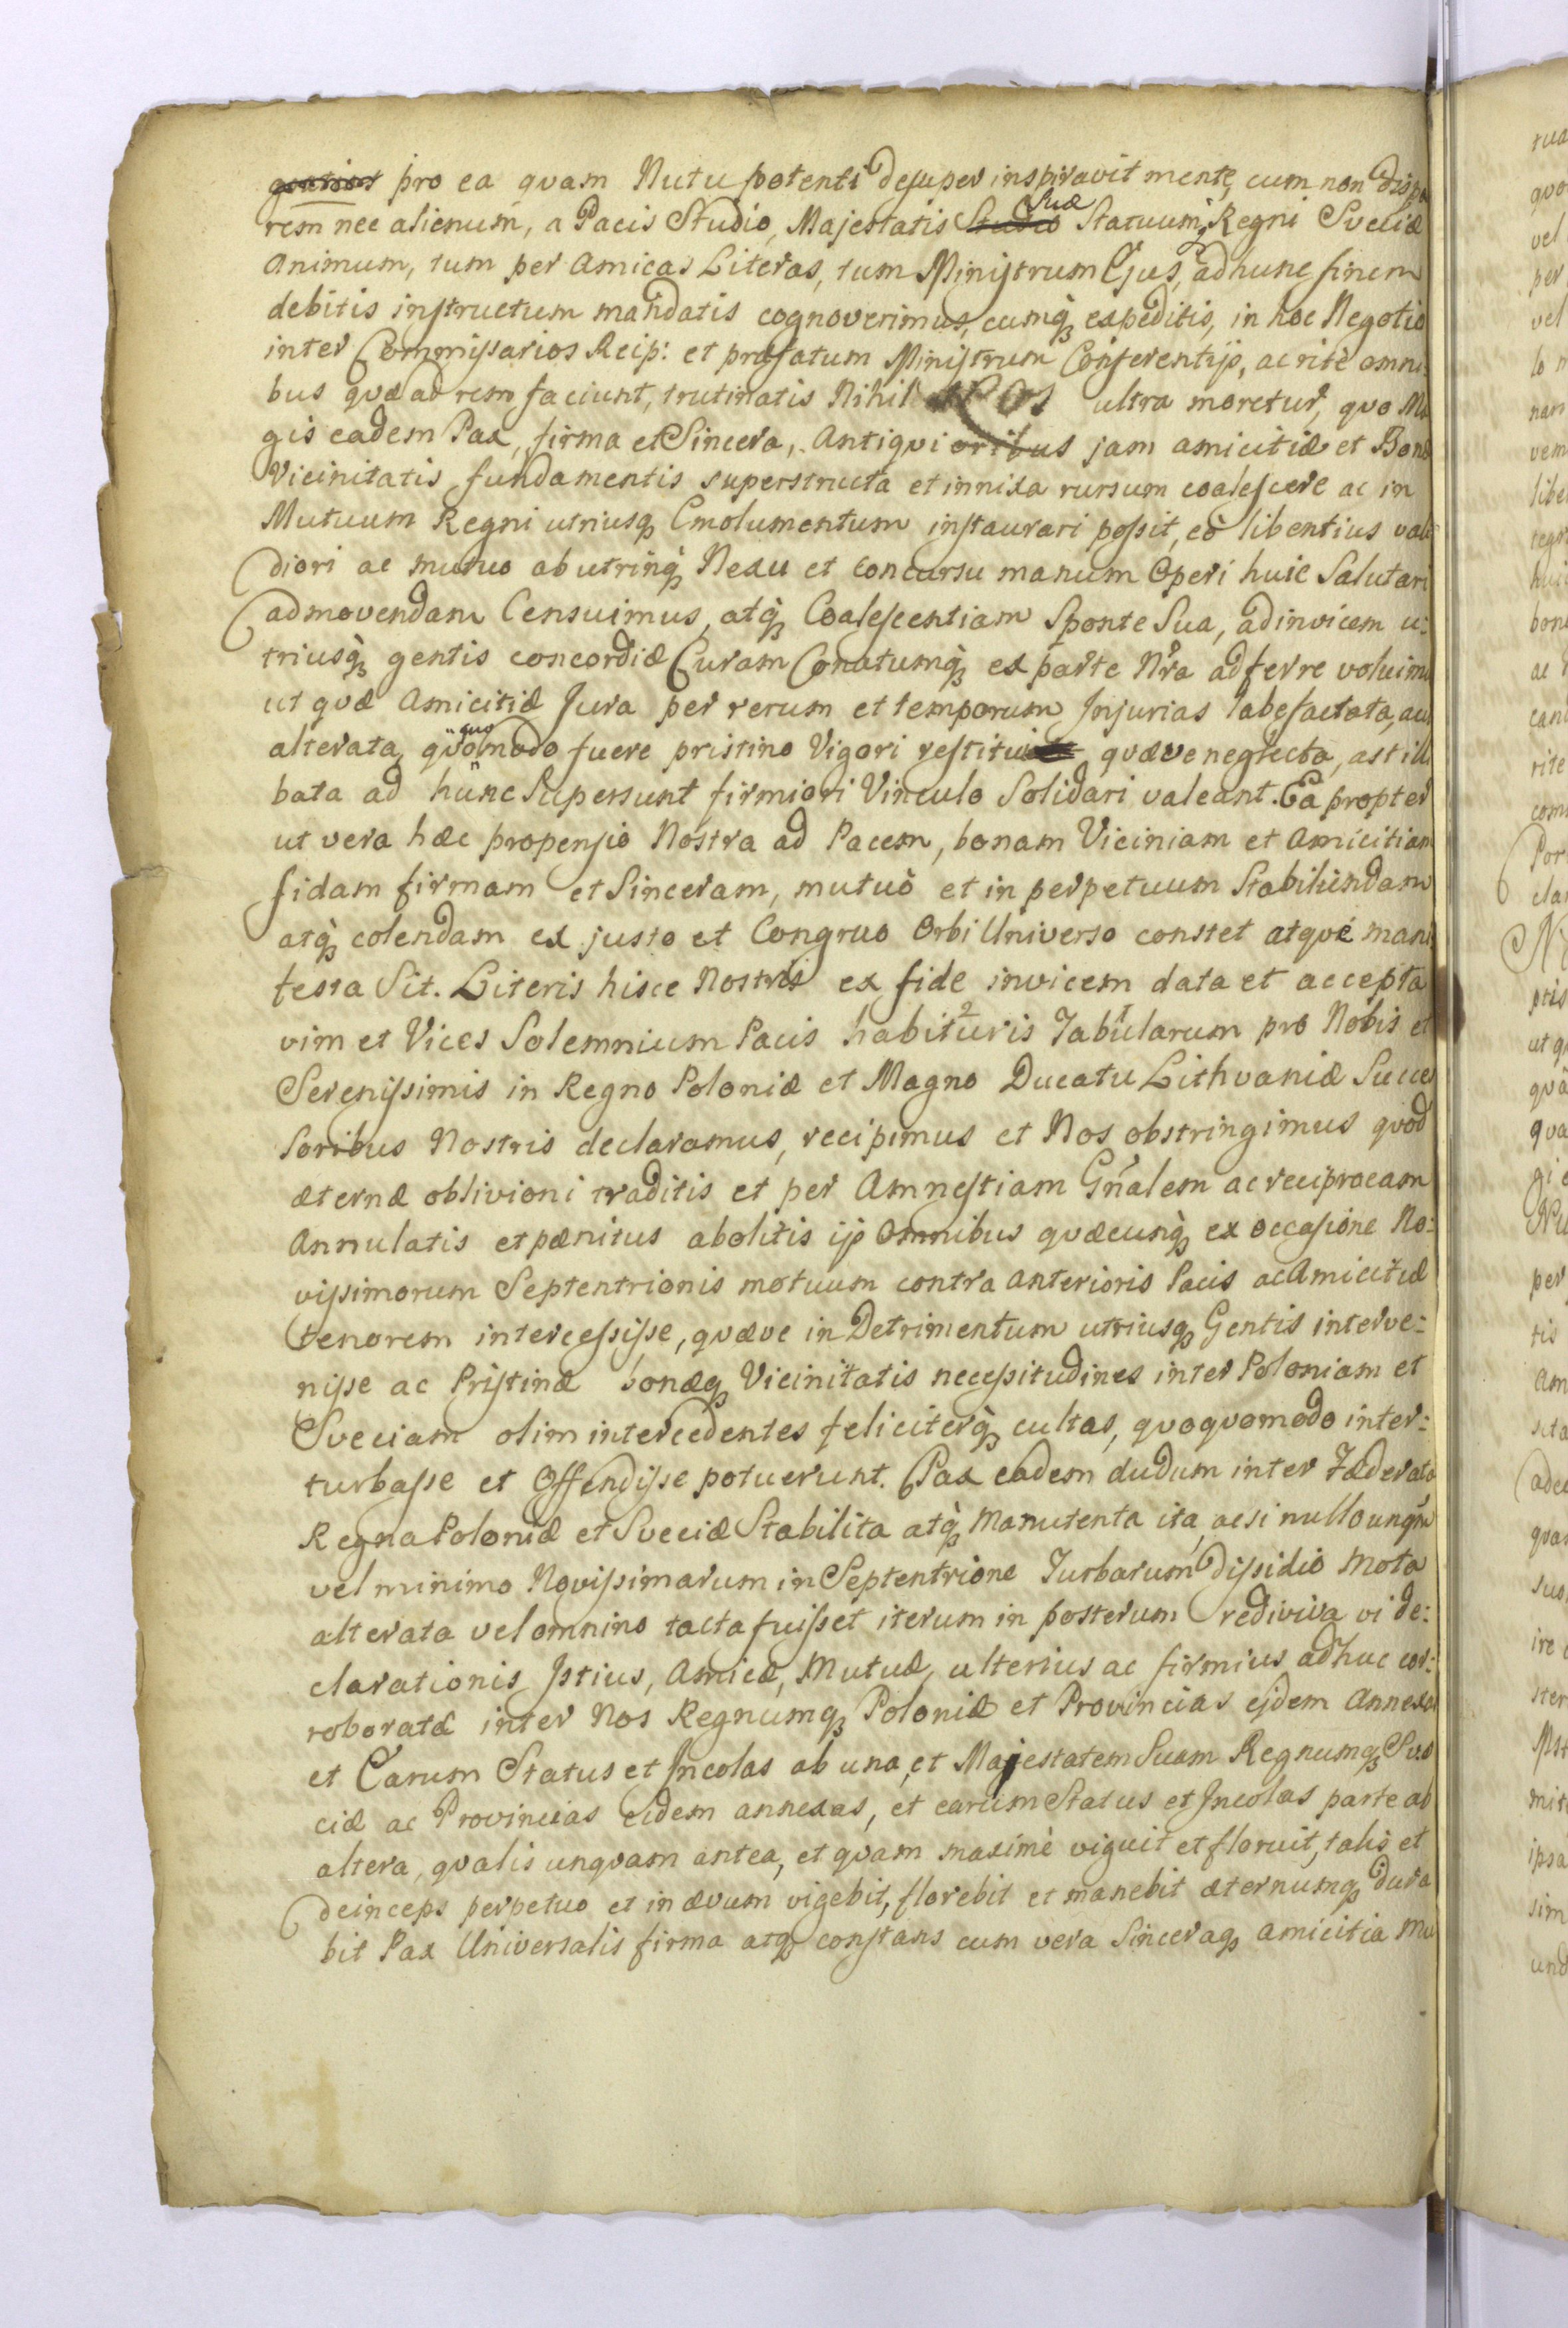 pro ea quam Nutu potenti desuper inspiravit mente, cum non dispa
rem nec alienum, a Pacis Studio, Majestatis Studio Suæ Statuumq Regni Sveciæ
Animum, tum per Amicas Literas, tum Ministrum Ejus, ad hunc finem
debitis instructum mandatis cognoverimus, cumq expeditis, in hoc Negotio
inter Commissarios Reip: et præfatum Ministrum Conferentijs, ac ritè omni:
bus quæ ad rem faciunt, trutinatis Nihil Nos ultra moretur, quo Ma
gis eadem Pax, firma et Sincera, Antiquioribus jam amicitiæ et Bonæ
Vicinitatis fundamentis superstructa et innixa rursum coalescere ac in
Mutuum Regni utriusq Emolumentum instaurari possit, eò libentius vali
diori ac mutuo ab utrinq Nexu et concursu manum Operi huic Salutari
admovendam Censuimus, atq Coalescentiam Sponte Sua, ad invicem u:
triusq gentis concordiæ Curam Conatumq ex parte Nra adferre voluimus
ut quæ Amicitiæ Jura per rerum et temporum Injurias labefactata, aut
alterata, quoquomodo fuere pristino Vigori restitui quæve neglecta, ast illi
bata ad hunc Supersunt firmiori Vinculo Solidari valeant. Ea propter
ut vera hæc propensio Nostra ad Pacem, bonam Viciniam et Amicitiam
fidam firmam et Sinceram, mutuò et in perpetuum Stabiliendam
atq colendam ex justo et Congruo Orbi Universo constet atque mani
festa Sit. Literis hisce Nostris ex fide invicem data et accepta
vim et Vices Solemnium Pacis habituris Tabularum pro Nobis et
Serenissimis in Regno Poloniæ et Magno Ducatu Lithvaniæ Succes
soribus Nostris declaramus, recipimus et Nos obstringimus quod
æternæ oblivioni traditis et per Amnestiam Gnalem ac reciprocam
Annulatis et pænitus abolitis ijs Omnibus quæcunq ex occasione No:
vissimorum Septentrionis motuum contra anterioris Pacis ac Amicitiæ
tenorem intercessisse, quæve in Detrimentum utriusq Gentis interve:
nisse ac Pristinæ bonæq Vicinitatis necessitudines inter Poloniam et
Sveciam olim intercedentes feliciterq cultas, quoquomodo inter:
turbasse et Offendisse potuerunt. Pax eadem dudum inter Fæderata
Regna Poloniæ et Sveciæ Stabilita atq Manutenta ita, ac si nullo unqm
vel minimo Novissimarum in Septentrione Turbarum Dissidio mota
alterata vel omnino tacta fuisset iterum in posterum rediviva vi de:
clarationis Istius, Amicæ, Mutuæ, ulterius ac firmius adhuc cor:
roborata inter Nos Regnumq Poloniæ et Provincias ejdem Annexas
et Earum Status et Incolas ab una, et Majestatem Suam Regnumq Sve
ciæ ac Provincias eidem annexas, et earum Status et Incolas parte ab
altera, qualis unquam antea, et quam maximè viguit et floruit, talis et
deinceps perpetuo et in ævum vigebit, florebit et manebit æternumq dura
bit Pax Universalis firma atq constans cum vera Sinceraq amicitia Mu